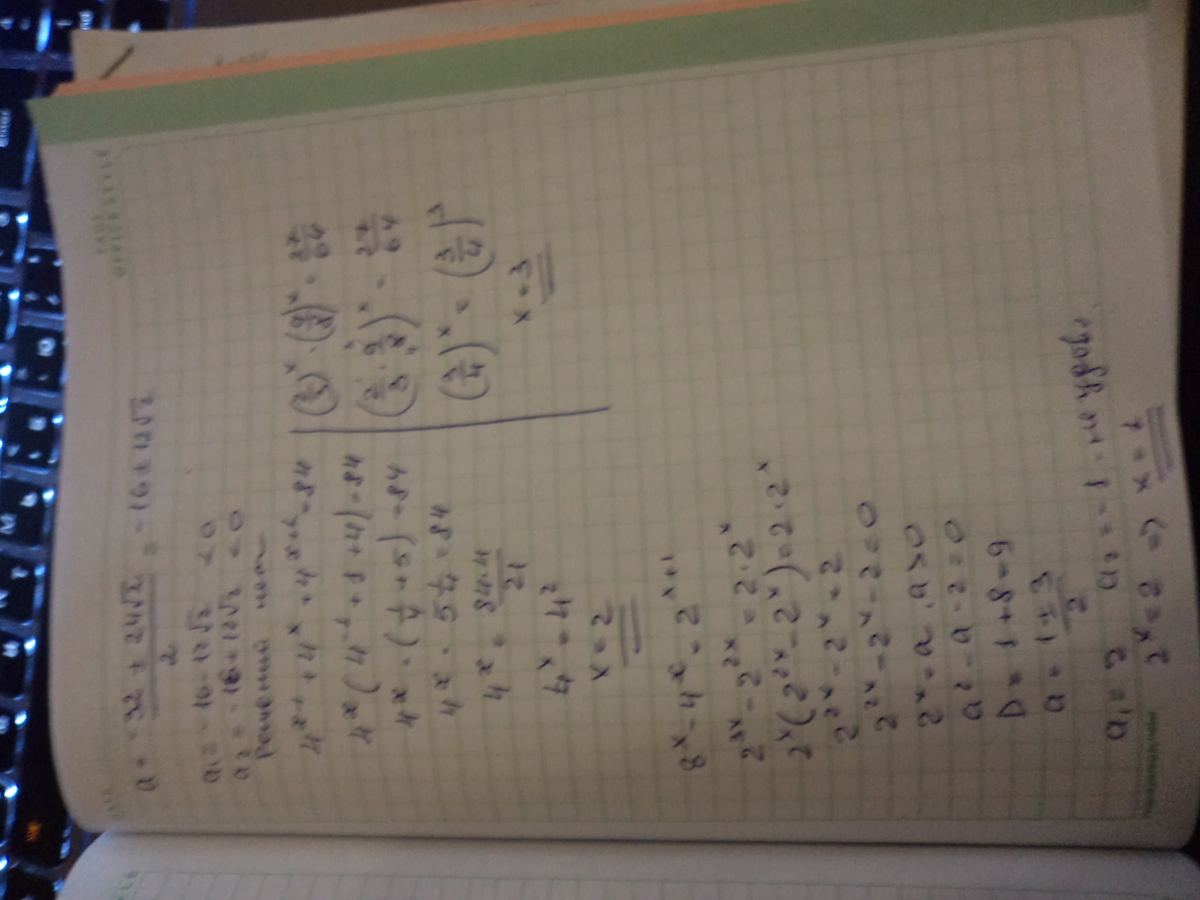 a = -32 ± 24√2 / 2 = -16 ± 12√2
a₁ = -16 - 12√2 < 0
a₂ = -16 + 12√2 < 0
Решений нет
4ˣ⁻¹ + 4ˣ + 4ˣ⁺¹ = 84
4ˣ(4⁻¹ + 1 + 4) = 84
4ˣ · (1/4 + 5) = 84
4ˣ · 5 1/4 = 84
4ˣ = 84·4 / 21
4ˣ = 4²
x = 2
(2/3)ˣ · (9/8)ˣ = 27/64
(2/3 · 9/8)ˣ = 27/64
(3/4)ˣ = (3/4)³
x = 3
8ˣ - 4ˣ = 2ˣ⁺¹
2³ˣ - 2²ˣ = 2·2ˣ
2ˣ(2²ˣ - 2ˣ) = 2·2ˣ
2²ˣ - 2ˣ = 2
2²ˣ - 2ˣ - 2 = 0
2ˣ = a, a > 0
a² - a - 2 = 0
D = 1 + 8 = 9
a = 1 ± 3 / 2
a₁ = 2 a₂ = -1 - не удовл
2ˣ = 2 => x = 1